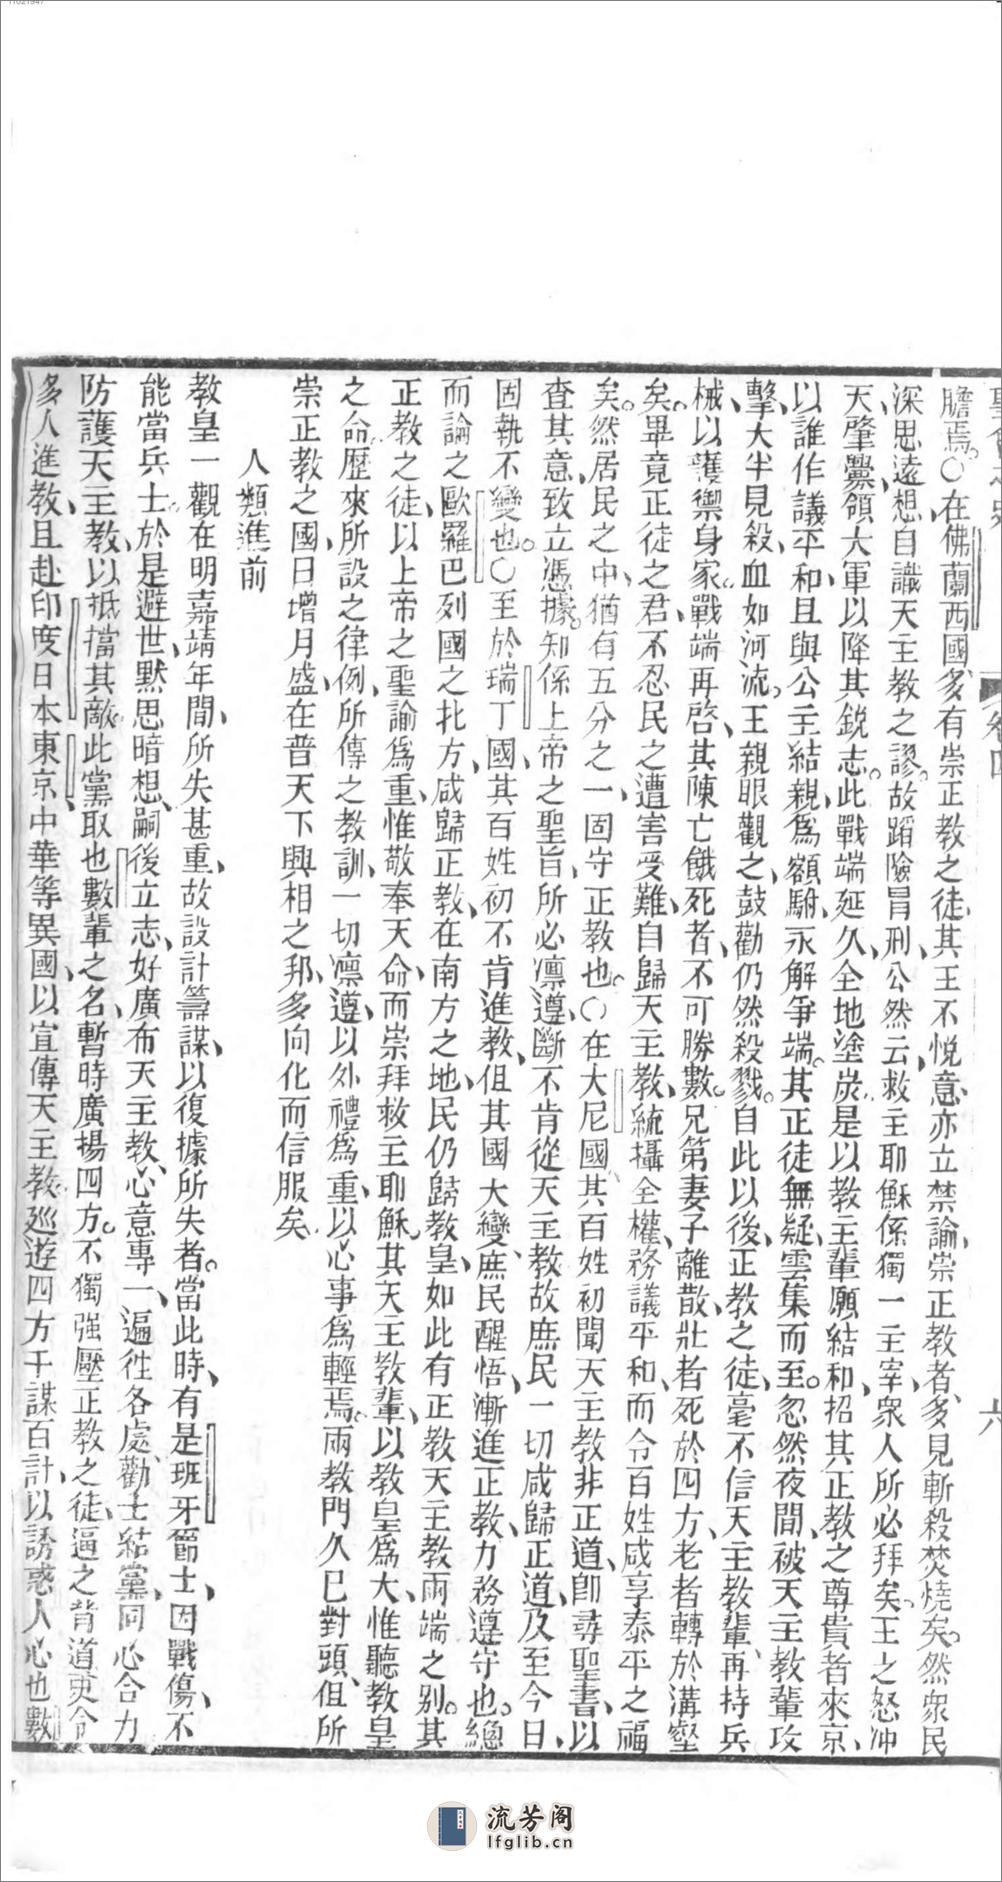 11021947
卷四
六
膽焉。○在佛蘭西國、多有崇正教之徒、其王不悅意、亦立禁諭、崇正教者、多見斬殺焚燒矣。然衆民
深思遠想、自識天主教之謬。故蹈險冒刑、公然云、救主耶穌係獨一主宰、衆人所必拜矣。王之怒沖
天、肇釁、領大軍以降其銳志。此戰端延久、全地塗炭、是以教主輩願結和、招其正教之尊貴者來京、
以誰作議平和、且與公主結親、爲額駙、永解爭端。其正徒無疑、雲集而至。忽然夜間、被天主教輩攻
擊、大半見殺、血如河流。王親眼觀之、鼓勸仍然殺戮。自此以後、正教之徒、毫不信天主教輩、再持兵
械、以護禦身家。戰端再啓、其陳亡餓死者、不可勝數。兄第妻子離散、壯者死於四方、老者轉於溝壑
矣。畢竟正徒之君、不忍民之遭害受難、自歸天主教、統攝全權、務議平和、而令百姓咸享泰平之福
矣。然居民之中、猶有五分之一、固守正教也。○在大尼國、其百姓初聞天主教非正道、卽尋聖書、以
查其意、致立憑據。知係上帝之聖旨、所必凛遵、斷不肯從天主教、故庶民一切咸歸正道、及至今日、
固執不變也。○至於瑞丁國、其百姓初不肯進教、但其國大變、庶民醒悟、漸進正教、力務遵守也。總
而論之、歐羅巴列國之北方、咸歸正教、在南方之地、民仍歸教皇、如此有正教天主教兩端之別。其
正教之徒、以上帝之聖諭爲重、惟敬奉天命、而崇拜救主耶穌。其天主教輩、以教皇爲大、惟聽教皇
之命、歷來所設之律例、所傳之教訓、一切凛遵、以外禮爲重、以心事爲輕焉。兩教門久已對頭、但所
崇正教之國、日增月盛、在普天下興相之邦、多向化而信服矣
人類進前
教皇一觀在明嘉靖年間、所失甚重、故設計籌謀、以復據所失者。當此時、有是班牙爵士、因戰傷、不
能當兵士、於是避世默思暗想、嗣後立志、好廣布天主教、心意專一、遍往各處、勸士結黨、同心合力
防護天主教、以抵擋其敵。此黨取也數輩之名、暫時廣揚四方。不獨强壓正教之徒、逼之背道、更令
多人進教、且赴印度日本東京中華等異國、以宣傳天主教、廵遊四方、千謀百計、以誘惑人心也、數
流芳阁
lfglib.cn